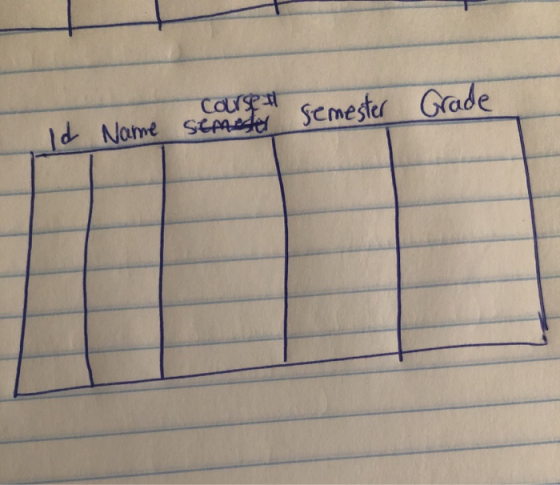 Id Name course# semester Grade
semester